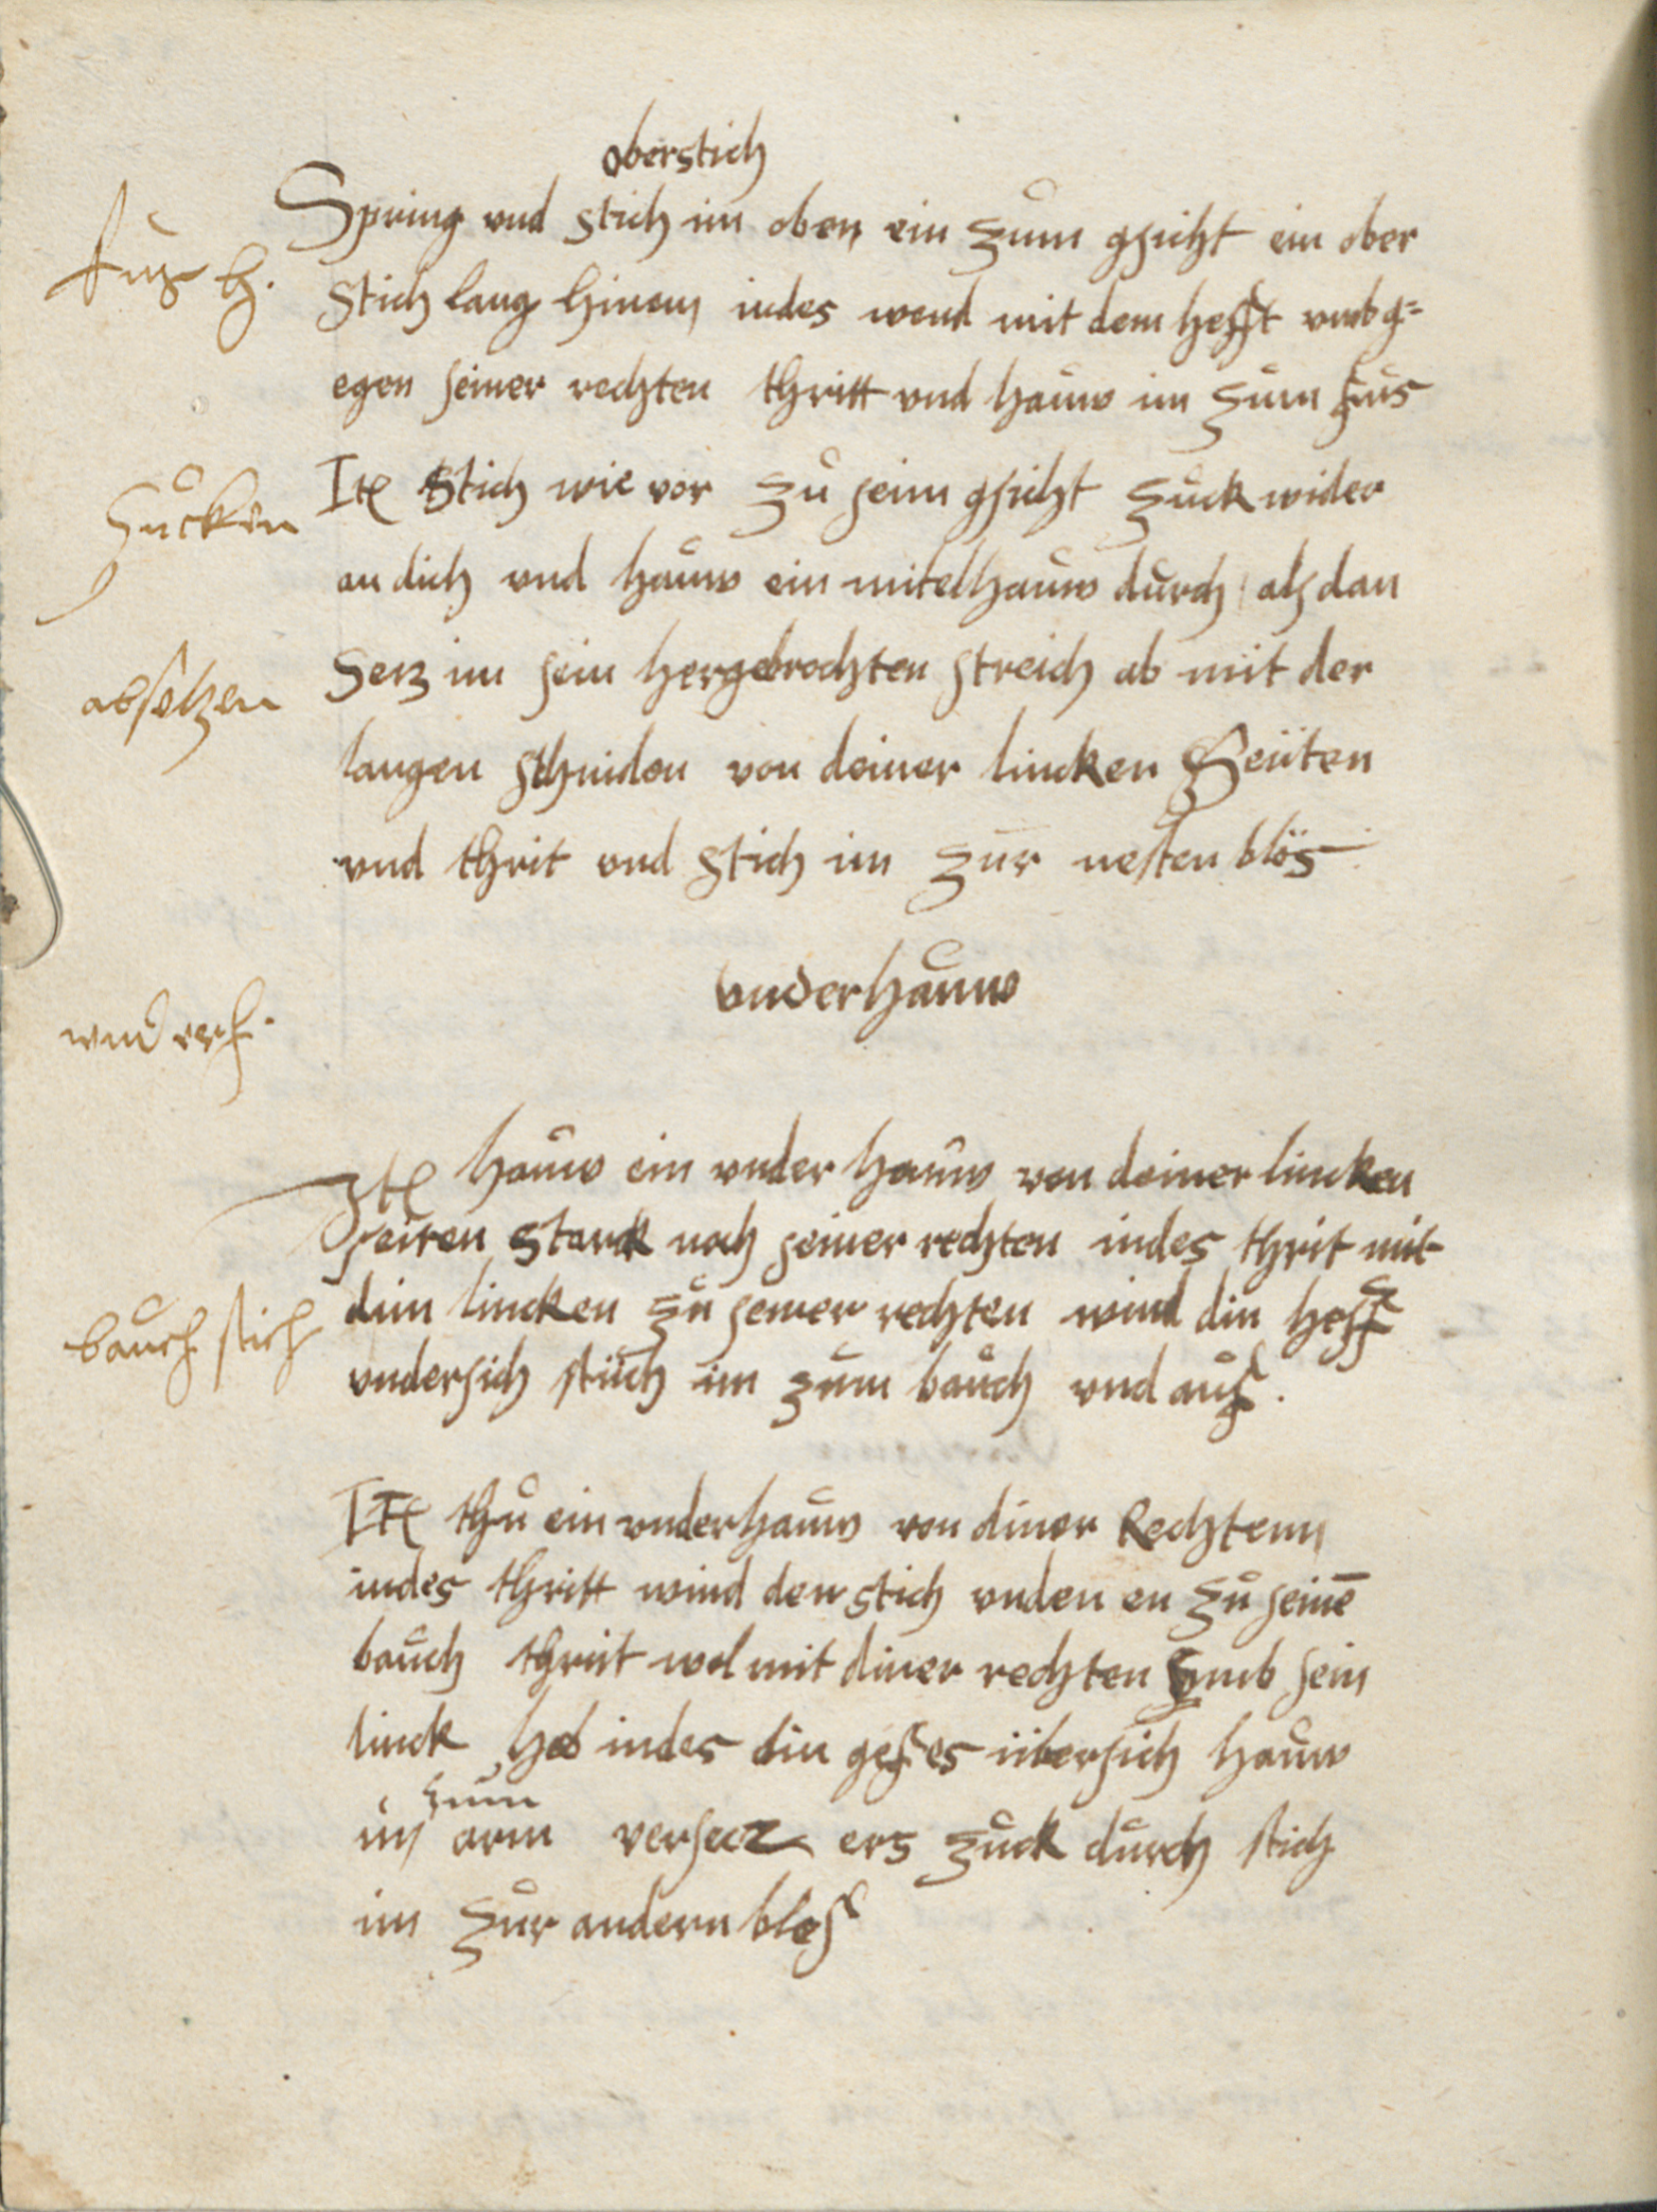 oberstich
Spring vnd stich im oben ein zum gsicht ein ober
fus h.
stich lang hinein indes wend mit dem hefft vmb g=
egen seiner rechten thritt vnd hauw im zum fus
Ite stich wie vor zů seim gsicht zuck wider
zucken
an dich vnd hauw ein mitelhauw durch als dan
Setz im sein hergebrochten streich ab mit der
absetzen
langen schniden von deiner lincken Seiiten
vnd thrit vnd stich im zur nesten blös
vnderhauw
Ite hauw ein vnder hauw von deiner lincken
seiten starck noch seiner rechten indes thrit mit
dim lincken zů seiner rechten wind din heff
bauch stich
vndersich stich im zum bauch vnd aus.
Ite thů ein vnderhauw von diner Rechtenn
indes thritt wind den stich vnden en zů seinē
bauch thrit wol mit diner rechten vmb sein
linck heb indes din gefes übersich hauw
zum
im arm versecz ers zuck durch stich
im zur andern blos